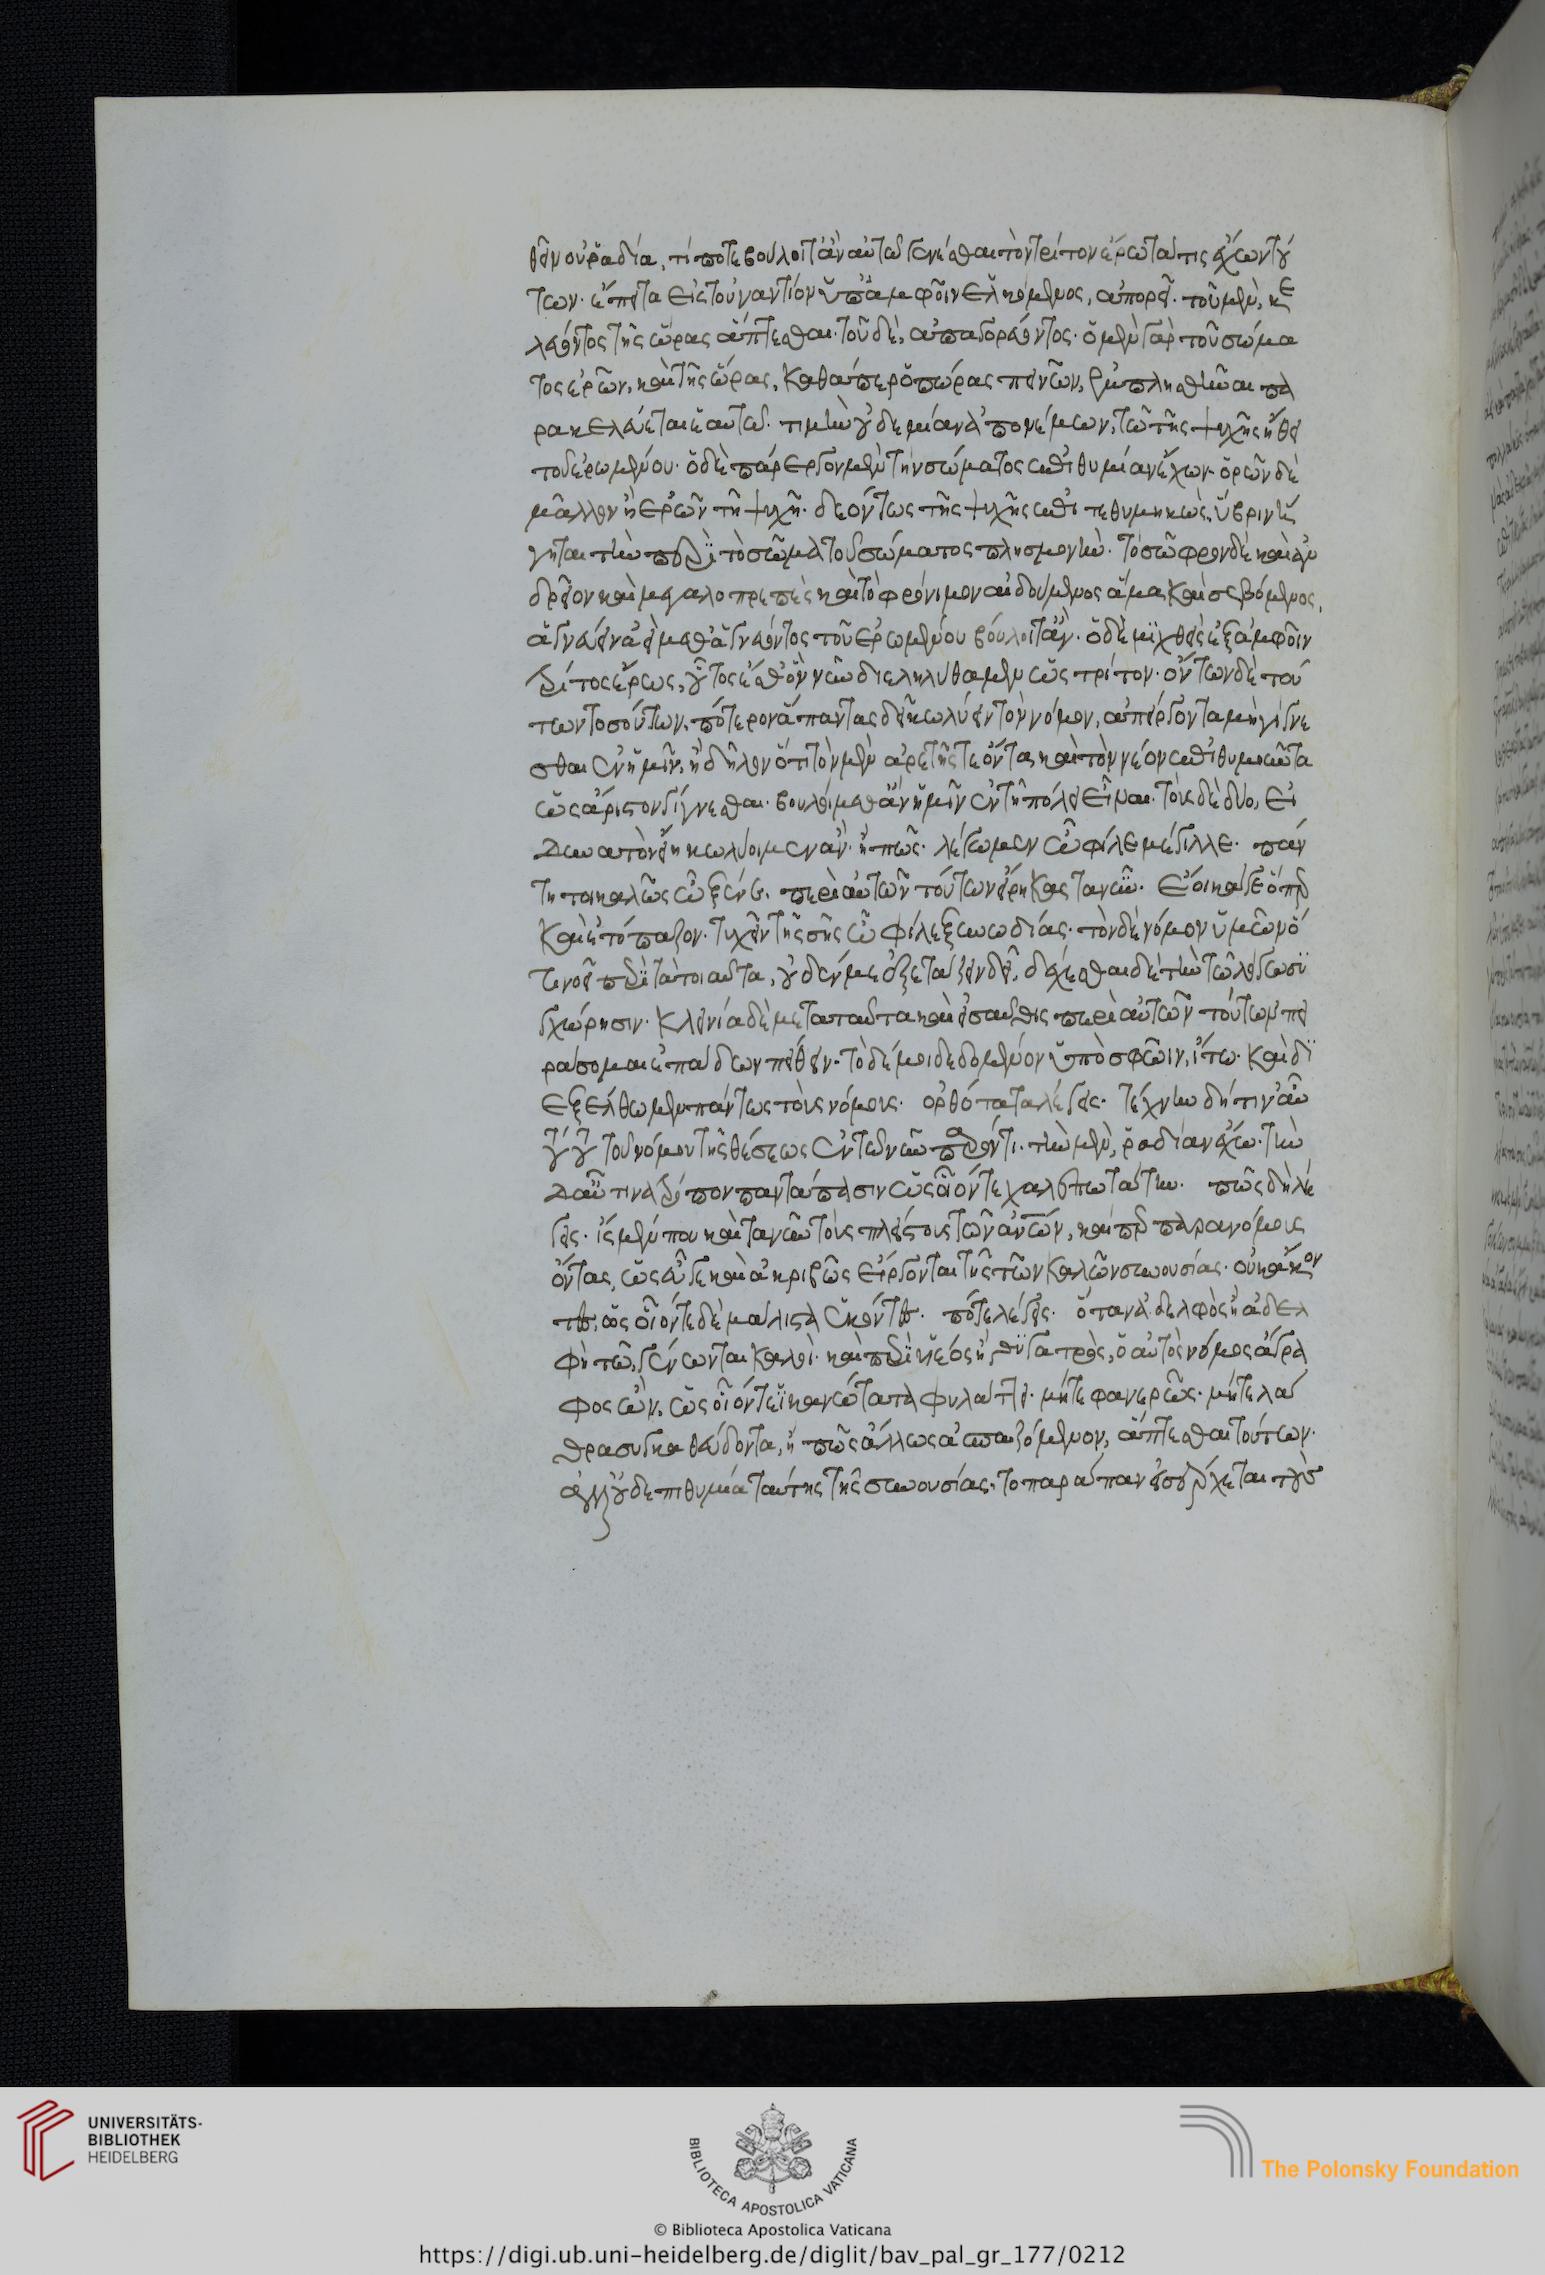 θεῖν οὐ ῥαδία, τί ποτε βούλοιτ' ἂν αὐτῶ γενέσθαι τὸν τρίτον ἔρωτά τις ἔχων τού
των. ἔπειτα εἰς τοὐναντίον ὑπ' ἀμφοῖν ἑλκόμενος, ἀπορεῖ. τοῦ μὲν, κε
λεύοντος τῆς ὥρας ἅπτεσθαι. τοῦ δὲ, ἀπαγορεύοντος. ὁ μὲν γὰρ τοῦ σώμα
τος ἐρῶν, καὶ τῆς ὥρας, καθάπερ ὀπώρας πεινῶν, ἐμπλησθῆναι πα
ρακελεύεται ἑαυτῶ. τιμὴν οὐδεμίαν ἀπονέμων, τῶ τῆς ψυχῆς ἤθει
τοῦ ἐρωμένου. ὁ δὲ πάρεργον μὲν τὴν σώματος ἐπιθυμίαν ἔχων. ὁρῶν δὲ
μᾶλλον ἢ ἐρῶν τῆ ψυχῆ. δεόντως τῆς ψυχῆς ἐπιτεθυμηκὼς, ὕβριν ἥ
γηται τὴν περὶ τὸ σῶμα τοῦ σώματος πλησμονήν. τὸ σῶφρον δὲ καὶ ἀν
δρεῖον καὶ μεγαλοπρεπὲς καὶ τὸ φρόνιμον αἰδούμενος ἅμα καὶ σεβόμενος,
ἁγνεύειν ἀεὶ μεθ' ἁγνεύοντος τοῦ ἐρωμένου βούλοιτ' ἄν. ὁ δὲ μιχθεὶς ἐξ ἀμφοῖν
τρίτος ἔρως, οὗτος ἔσθ' ὃν νῦν διεληλύθαμεν ὡς τρίτον. ὄντων δὲ τού
των τοσούτων, πότερον ἅπαντας δεῖ κωλύειν τὸν νόμον, ἀπείργοντα μὴ γίγνε
σθαι ἐν ἡμῖν, ἢ δῆλον ὅτι τὸν μὲν ἀρετῆς τε ὄντα, καὶ τὸν νέον ἐπιθυμοῦντα
ὡς ἄριστον γίγνεσθαι. βουλοίμεθ' ἂν ἡμῖν ἐν τῆ πόλει εἶναι. τοὺς δὲ δύο, εἰ
δυνατὸν εἴη κωλύοιμεν ἄν. ἢ πῶς. λέγωμεν ὦ φίλε μέγιλλε. πάν
τη τοι καλῶς ὦ ξένε. περὶ αὐτῶν τούτων εἴρηκας τανῦν. ἔοικά γε ὅπερ
καὶ ἐτόπαζον. τυχεῖν τῆς σῆς ὦ φίλε ξυνωδίας. τὸν δὲ νόμον ὑμῶν ὅ
τι νοεῖ περὶ τὰ τοιαῦτα, οὐδέν με ἐξετάζειν δεῖ, δέχεσθαι δὲ τὴν τῶ λόγω συ
γχώρησιν. κλεινία δὲ μετὰ ταῦτα καὶ εἰσαῦθις περὶ αὐτῶν τούτων πει
ράσομαι ἐπάδων πείθειν. τὸ δέ μοι δεδομένον ὑπὸ σφῶιν, ἴτω. καὶ δι
εξέλθωμεν πάντως τοὺς νόμους. ὀρθότατα λέγεις. τέχνην δή τιν' αὖ
τούτου τοῦ νόμου τῆς θέσεως ἐν τῶ νῦν παρόντι. τὴν μὲν, ῥαδίαν ἔχω. τὴν
δ' αὖ τινα τρόπον παντάπασιν ὡς οἷόν τε χαλεπωτάτην. πῶς δὴ λέ
γεις. ἴσμέν που καὶ τανῦν τοὺς πλείστους τῶν ἀνθρώπων, καίπερ παρανόμους
ὄντας, ὡς εὖ τε καὶ ἀκριβῶς εἴργονται τῆς τῶν καλῶν συνουσίας. οὐκ ἄκον
τες, ὡς οἷόν τε δὲ μάλιστα ἑκόντες. πότε λέγεις. ὅταν ἀδελφὸς ἢ ἀδελ
φή τω γένωνται καλοί. καὶ περὶ υἱέος ἢ θυγατρὸς, ὁ αὐτὸς νόμος ἄγρα
φος ὢν, ὡς οἷόν τε ἱκανώτατα φυλάττει. μήτε φανερῶς. μήτε λά
θρα συγκαθεύδοντα, ἤ πως ἄλλως ἀσπαζόμενον, ἅπτεσθαι τούτων.
ἀλλ' οὐδ' ἐπιθυμία ταύτης τῆς συνουσίας. τοπαράπαν εἰσέρχεται τοὺσ
UNIVERSITÄTS-
BIBLIOTHEK
HEIDELBERG
BIBLIOTECA APOSTOLICA VATICANA
The Polonsky Foundation
© Biblioteca Apostolica Vaticana
https://digi.ub.uni-heidelberg.de/diglit/bav_pal_gr_177/0212